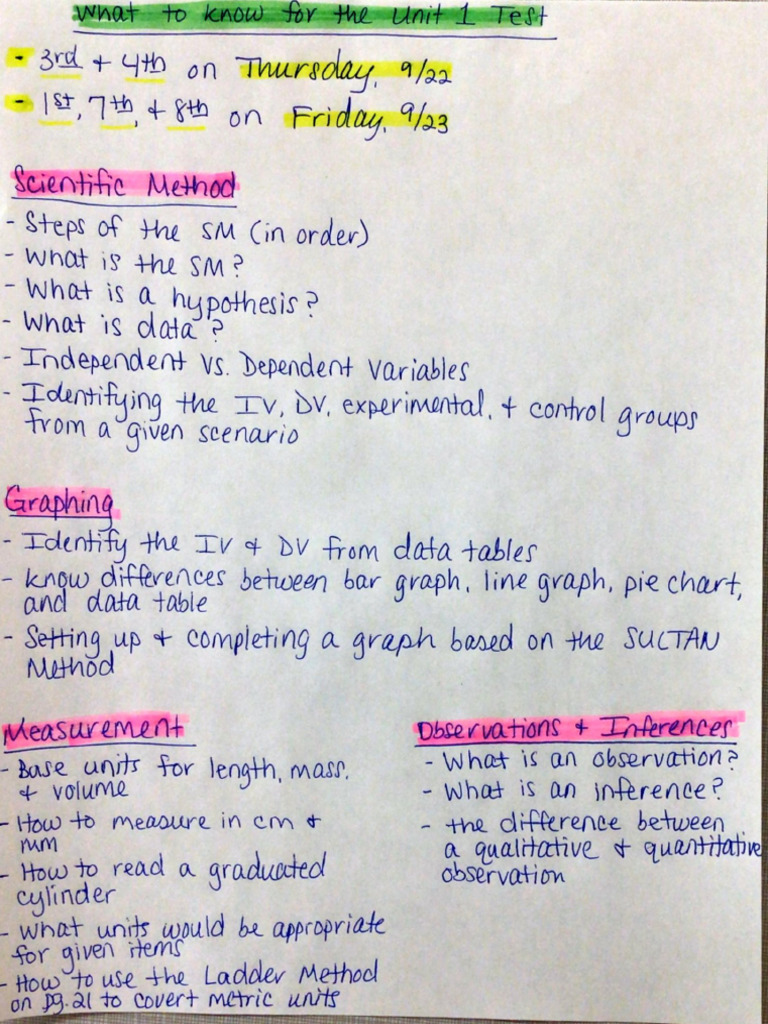 What to know for the Unit 1 Test
- 3rd + 4th on Thursday, 9/22
- 1st, 7th, + 8th on Friday, 9/23
Scientific Method
- Steps of the SM (in order)
- What is the SM?
- What is a hypothesis?
- What is data?
- Independent vs. Dependent variables
- Identifying the IV, DV, experimental, + control groups
from a given scenario
Graphing
- Identify the IV + DV from data tables
- know differences between bar graph, line graph, pie chart,
and data table
- Setting up + completing a graph based on the SULTAN
Method
Measurement
- Base units for length, mass,
+ volume
- How to measure in cm +
mm
- How to read a graduated
cylinder
- what units would be appropriate
for given items
- How to use the Ladder Method
on pg. 21 to covert metric units
Observations + Inferences
- What is an observation?
- What is an inference?
- the difference between
a qualitative + quantitative
observation